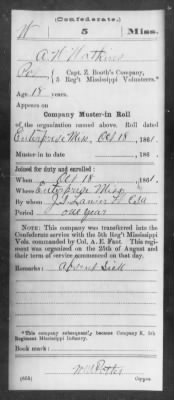 (Confederate.)
W 5 Miss.
A. W. Watkins
Capt. Z. Booth's Company,
5 Reg't Mississippi Volunteers.*
Age 18 years.
Appears on
Company Muster-in Roll
of the organization named above. Roll dated
Enterprise Miss, Oct 18, 1861.
Muster-in to date , 186 .
Joined for duty and enrolled:
When Oct 18, 1861.
Where Enterprise Miss
By whom
Period one year
NOTE: This company was transferred into the
Confederate service with the 5th Reg't Mississippi
Vols. commanded by Col. A. E. Fant. This regi-
ment was organized on the 25th of August and
their term of service commenced on that day.
Remarks: Absent Sick
*This company subsequently became Company K, 5th
Regiment Mississippi Infantry.
Book mark:
Copyist.